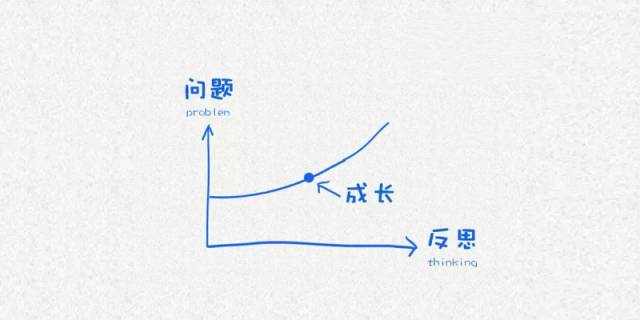 问题
problen
成长
反思
thinking